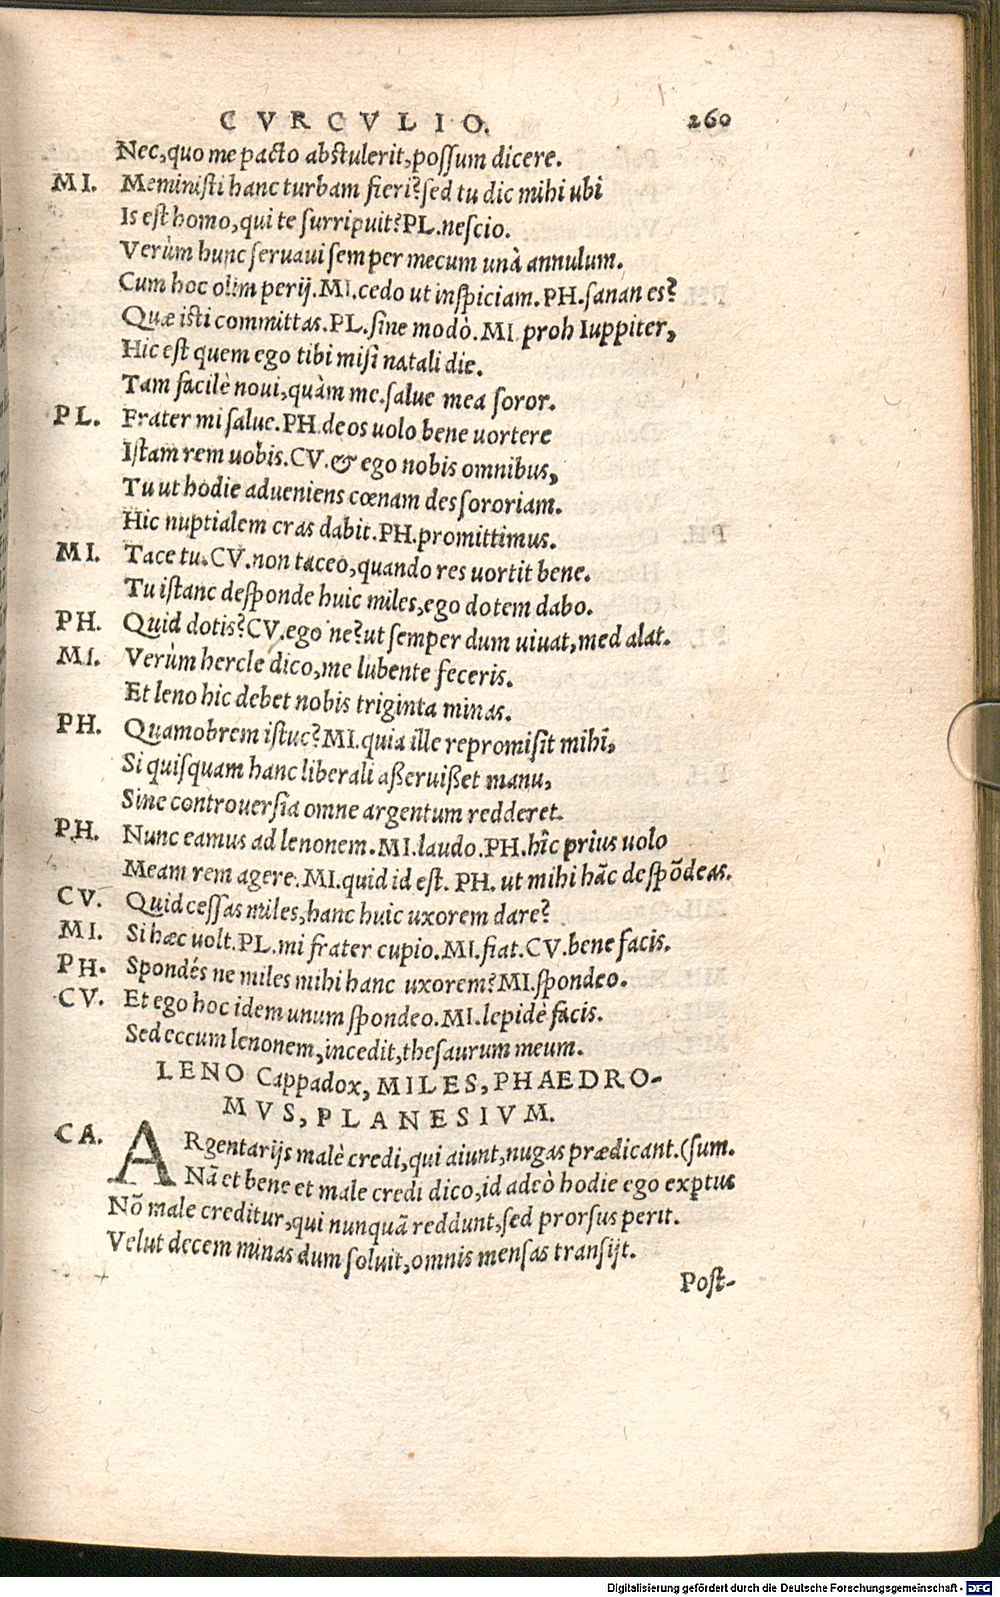 CVRCVLIO. 260
Nec, quo me pacto abstulerit, possum dicere.
MI. Meministi hanc turbam fieri? sed tu dic mihi ubi
Is est homo, qui te surripuit? PL. nescio.
Verùm hunc seruaui semper mecum unà annulum.
Cum hoc olim perij. MI. cedo ut inspiciam. PH. sanan es?
Quæ isti committas. PL. sine modò. MI. proh Iuppiter,
Hic est quem ego tibi misi natali die.
Tam facilè noui, quàm me. salue mea soror.
PL. Frater mi salue. PH. deos uolo bene uortere
Istam rem uobis. CV. & ego nobis omnibus,
Tu ut hodie adueniens cœnam des sororiam.
Hic nuptialem cras dabit. PH. promittimus.
MI. Tace tu. CV. non taceo, quando res uortit bene.
Tu istanc desponde huic miles, ego dotem dabo.
PH. Quid dotis? CV. ego ne? ut semper dum uiuat, med alat.
MI. Verùm hercle dico, me lubente feceris.
Et leno hic debet nobis triginta minas.
PH. Quamobrem istuc? MI. quia ille repromisit mihi,
Si quisquam hanc liberali aßeruißet manu,
Sine controuersia omne argentum redderet.
PH. Nunc eamus ad lenonem. MI. laudo. PH. hîc prius uolo
Meam rem agere. MI. quid id est. PH. ut mihi hãc despõdeas.
CV. Quid cessas miles, hanc huic uxorem dare?
MI. Si hæc uolt. PL. mi frater cupio. MI. fiat. CV. bene facis.
PH. Spondés ne miles mihi hanc uxorem? MI. spondeo.
CV. Et ego hoc idem unum spondeo. MI. lepidè facis.
Sed eccum lenonem, incedit, thesaurum meum.
LENO Cappadox, MILES, PHAEDRO-
MVS, PLANESIVM.
CA. ARgentarijs malè credi, qui aiunt, nugas prædicant. (sum.
Nã et bene et male credi dico, id adeò hodie ego exptus
Nõ male creditur, qui nunquã reddunt, sed prorsus perit.
Velut decem minas dum soluit, omnis mensas transijt.
Post-
Digitalisierung gefördert durch die Deutsche Forschungsgemeinschaft - DFG